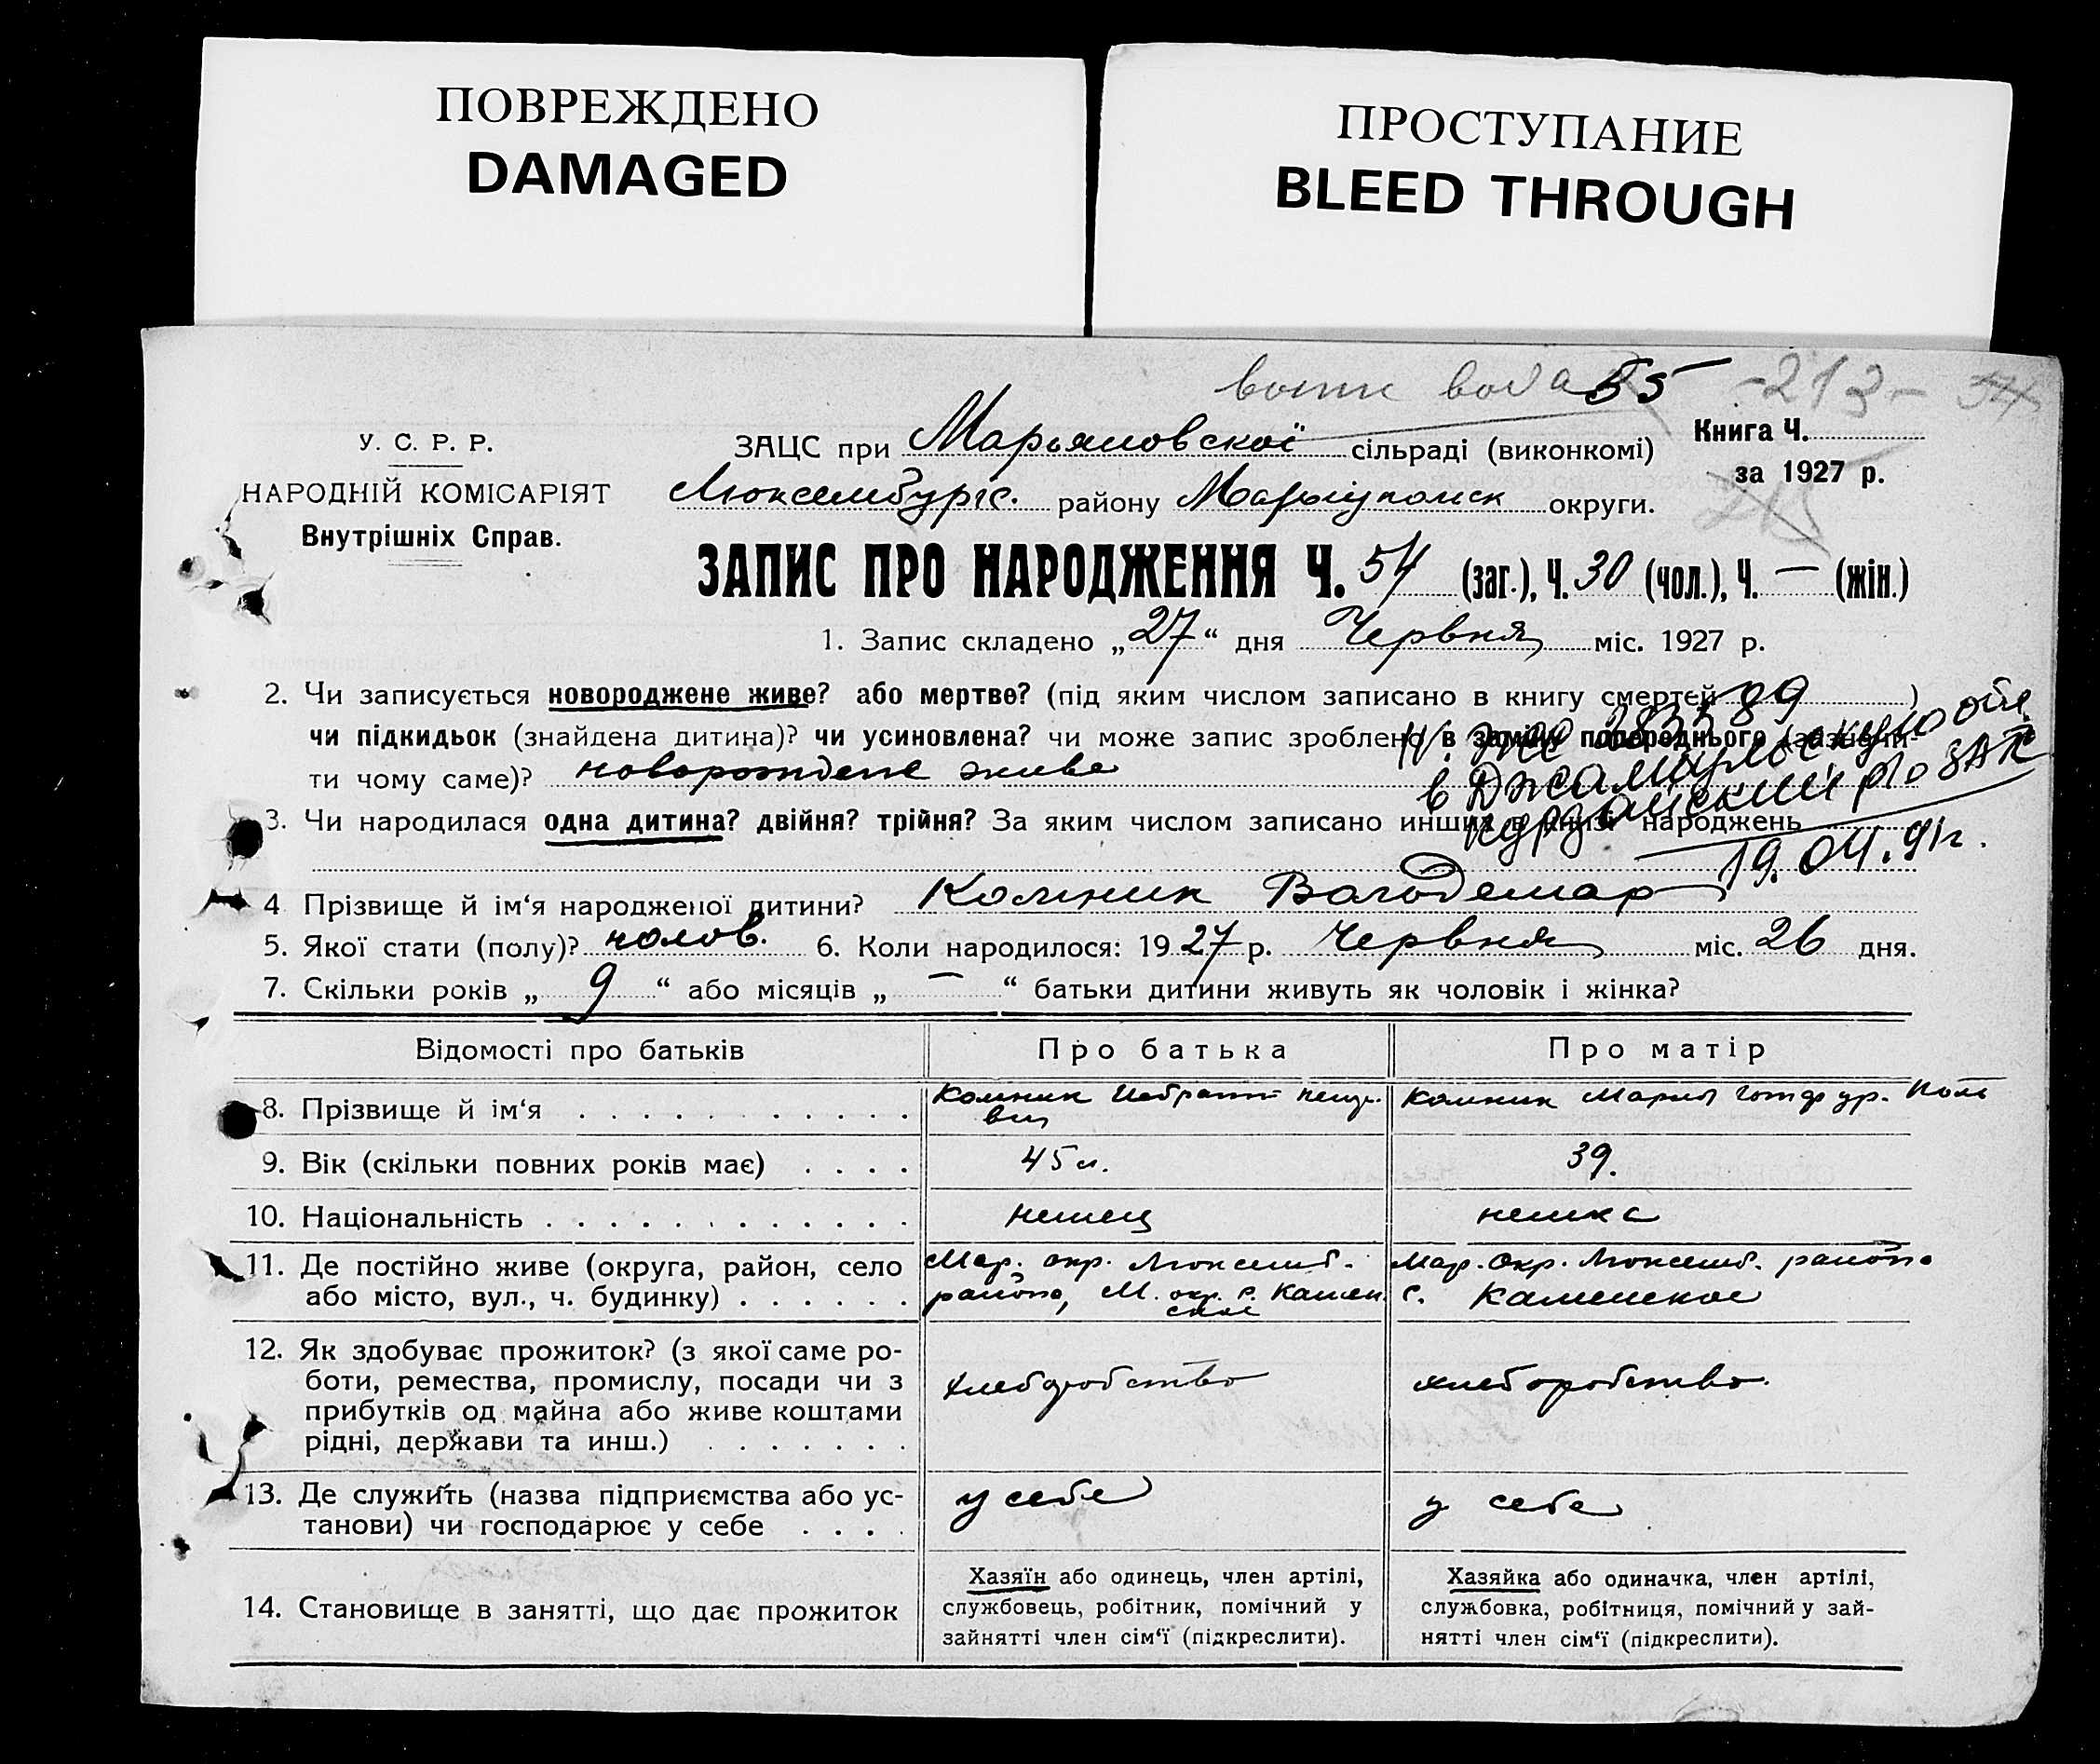 ПОВРЕЖДЕНО
DAMAGED
ПРОСТУПАНИЕ
BLEED THROUGH
55 -213- 54
У. С. Р. Р.
НАРОДНІЙ КОМІСАРІЯТ
Внутрішніх Справ.
ЗАЦС при Марьяновскої сільраді (виконкомі)
Люксембургс. району Маріупольск округи.
Книга Ч.
за 1927 р.
215
ЗАПИС ПРО НАРОДЖЕННЯ Ч. 54 (заг.), Ч. 30 (чол.), Ч. — (жін.)
1. Запис складено „27“ дня Червня міс. 1927 р.
2. Чи записується новороджене живе? або мертве? (під яким числом записано в книгу смертей )
чи підкидьок (знайдена дитина)? чи усиновлена? чи може запис зроблено в заміну попереднього (зазначи-
ти чому саме)? новорождене живе
в Джамбульскую обл.
Курдайский р/о ЗАГС
19.04.91г.
3. Чи народилася одна дитина? двійня? трійня? За яким числом записано инших в книзі народжень
4 Прізвище й ім‘я народженої дитини? Комник Вольдемар
5. Якої стати (полу)? чолов. 6. Коли народилося: 1927 р. Червня міс. 26 дня.
7. Скільки років „ 9 “ або місяців „ — “ батьки дитини живуть як чоловік і жінка?
Відомості про батьків Про батька Про матір
8. Прізвище й ім‘я Комник Комник Мария ур.
9. Вік (скільки повних років має) 45 л. 39.
10. Національність немец немка
11. Де постійно живе (округа, район, село
або місто, вул., ч. будинку)
Мар. окр. Люксемб.
района, М. окр. с. Камен
ское
Мар. Окр. Люксемб. района
с. Каменское
12. Як здобуває прожиток? (з якої саме ро-
боти, ремества, промислу, посади чи з
прибутків од майна або живе коштами
рідні, держави та инш.)
хлеборобство хлеборобство
13. Де служить (назва підприємства або ус-
танови) чи господарює у себе
у себе у себе
14. Становище в занятті, що дає прожиток
Хазяїн або одинець, член артілі,
службовець, робітник, помічний у
зайнятті член сім‘ї (підкреслити).
Хазяйка або одиначка, член артілі,
службовка, робітниця, помічний у зай-
нятті член сім‘ї (підкреслити).